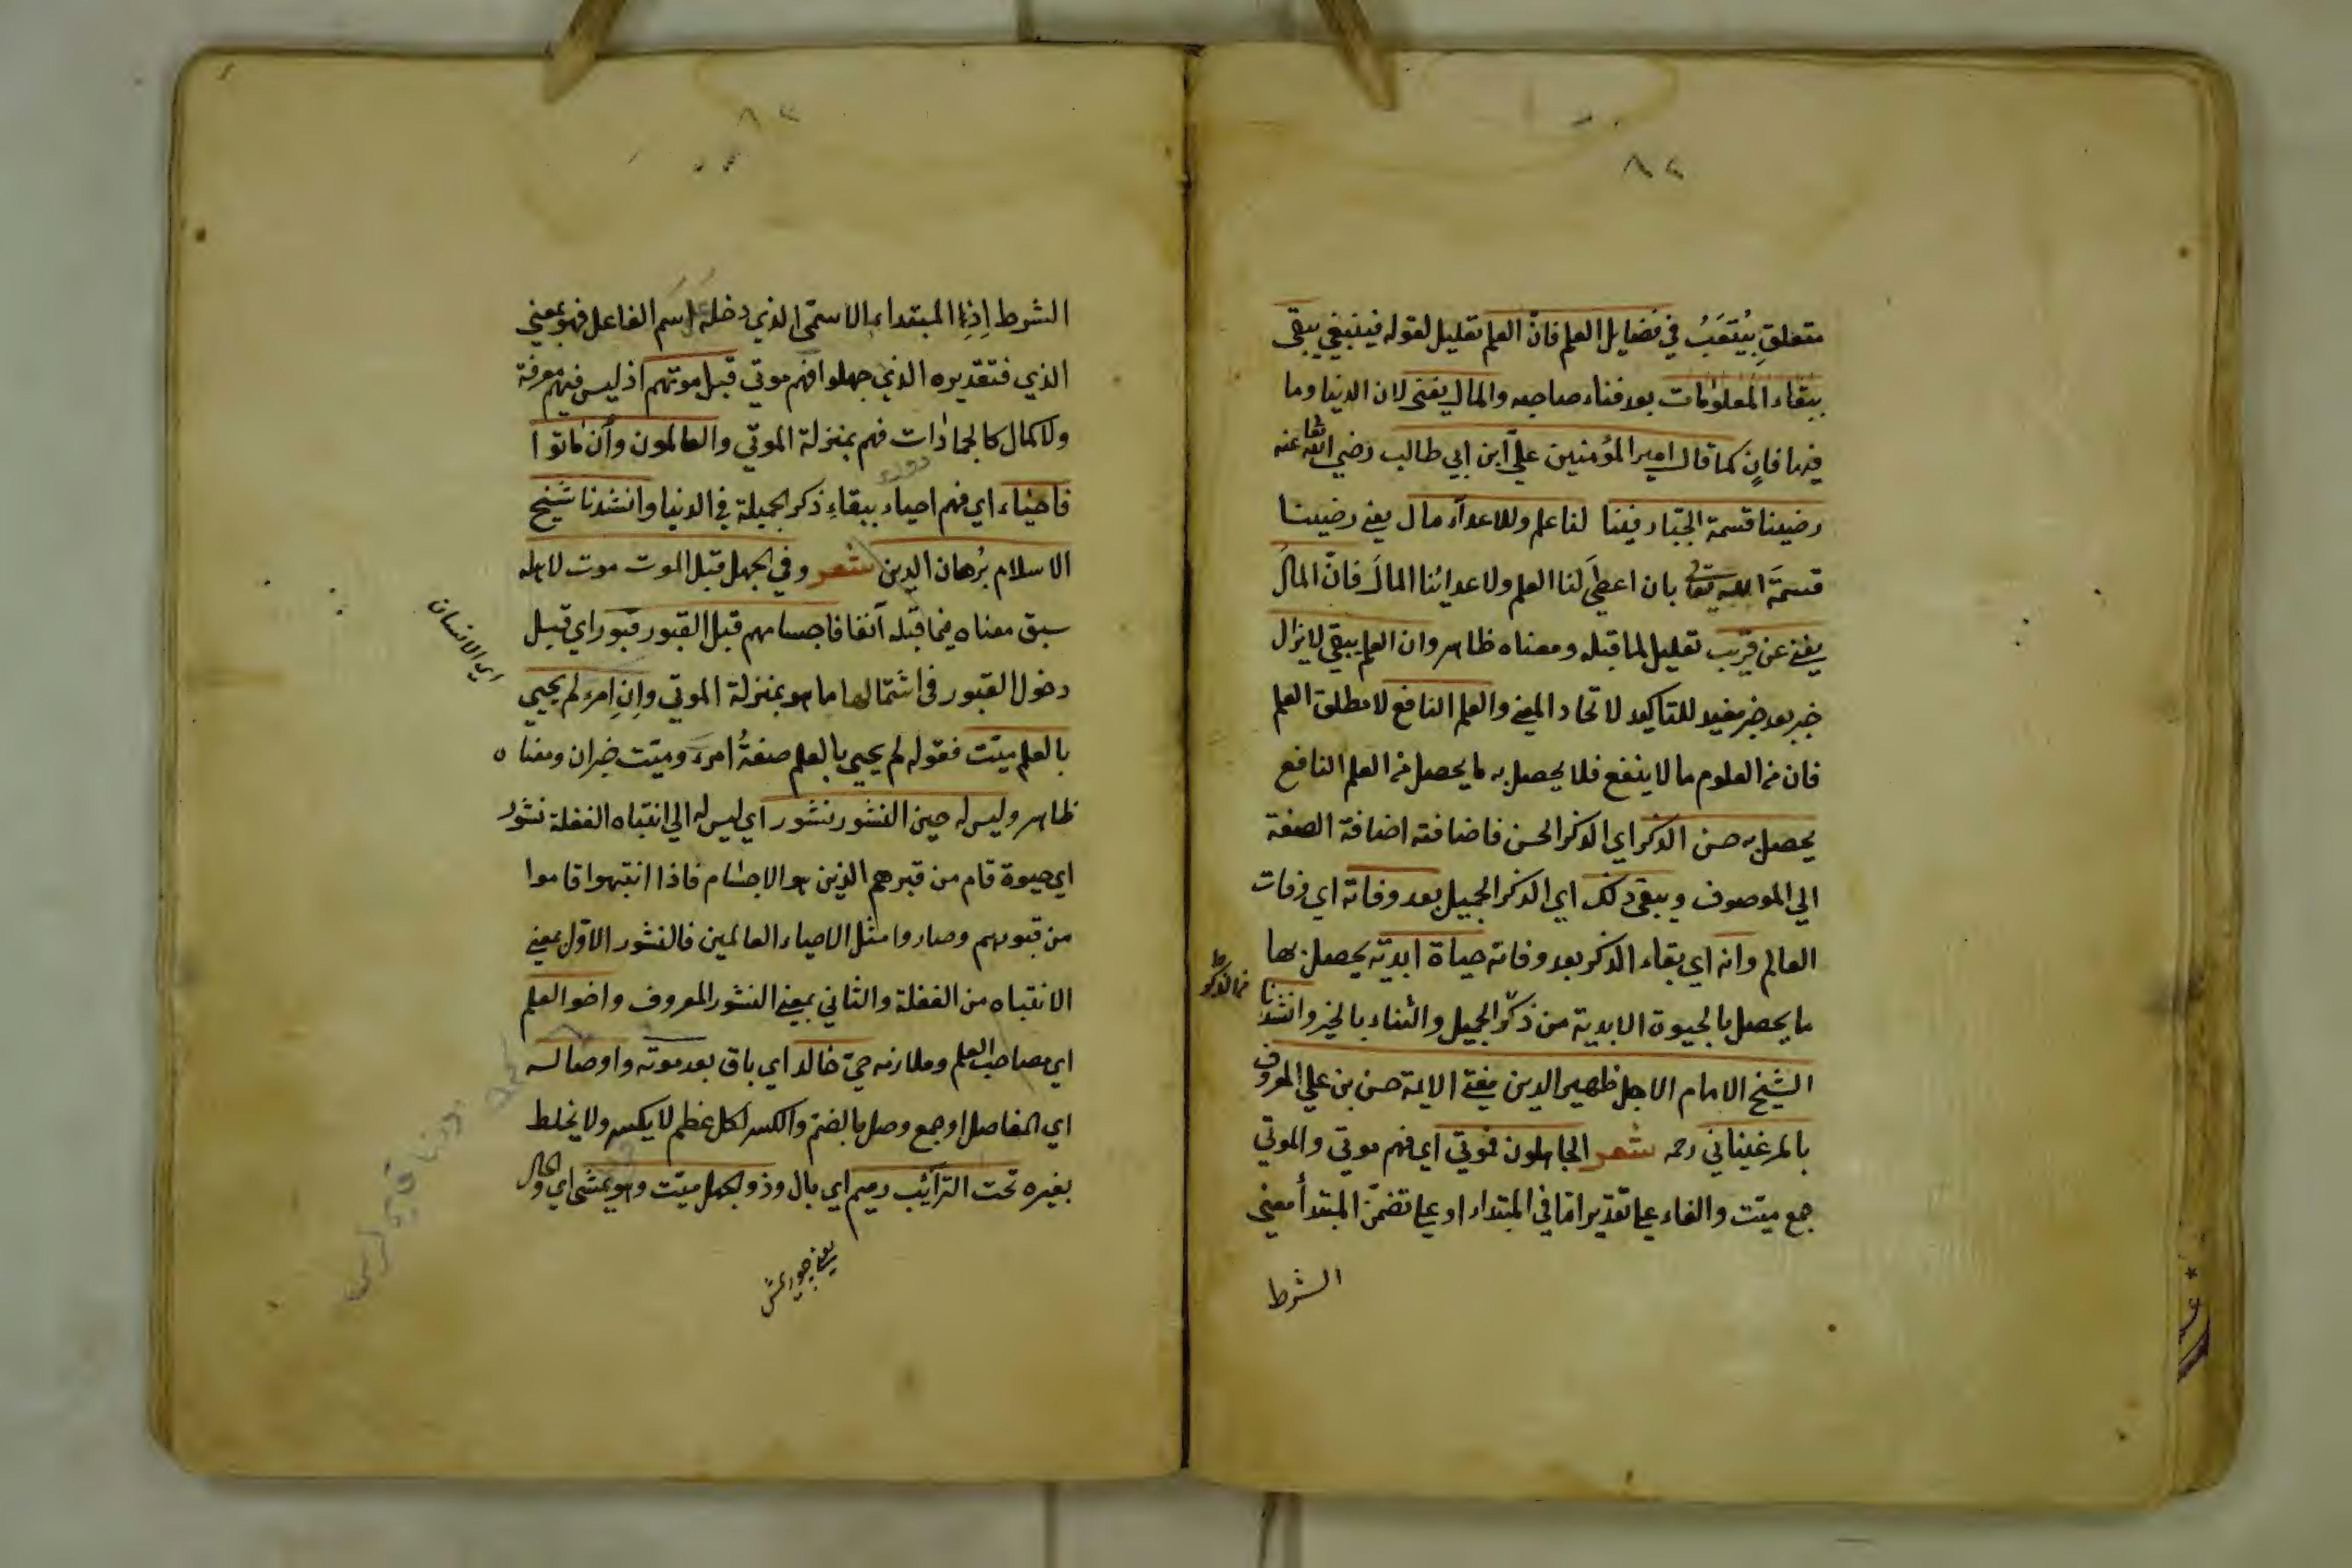 ٨٢
متعلق بيُتعَبُ في فضايل العلم فانّ العلم تعليل لقوله فينبغي يبقى
ببقاء المعلومات بعد فناء صاحبه والمال يفنى لان الدنيا وما
فيها فانٍ كما قال امير المؤمنين عليّ ابن ابي طالب رضي الله تعا عنه
رضينا قسمة الجبّار فينا لنا علم وللاعدآء مال يعني رضينا
قسمَة الله تعالى بان اعطىَ لنا العلم ولاعدائنا المالَ فانّ المالُ
يفنى عن قريب تعليل لما قبله ومعناه ظاهر وان العلم يبقى لا يزال
خبر بعد خبر مفيد للتاكيد لاتحاد المعنى والعلم النافع لا مطلق العلم
فان من العلوم ما لا ينفع فلا يحصل به ما يحصل من العلم النافع
يحصل به حسن الذكر اي الذكر الحسن فاضافته اضافة الصفة
الي الموصوف ويبقى ذلك اي الذكر الجميل بعد وفاته اي وفات
العالم وانه اي بقاء الذكر بعد وفاته حياة ابديّة يحصل بها
من الذكر
ما يحصل بالحيوة الابدية من ذكر الجميل والثناء بالخير وانشدنا
الشيخ الامام الاجل ظهير الدين مفتي الايمة حسن بن علي المعروف
بالمرغيناني رحمه شعر الجاهلون فموتي اي فهم موتي والموتي
جمع ميّت والفاء علي تقدير امّا في المبتداء او علي تضمّن المبتدأ معنى
الشرط
٨٢
الشرط اِذِ المبتداء بالاسمى الذي دخله اسم الفاعل فهو بمعني
الذي فتقديره الذي جهلوا فهم موتي قبل موتهم اذ ليس فيهم معرفة
ولا كمال كالجمادات فهم بمنزلة الموتي والعالمون وأن ماتوا
فاحياء اي فهم احياء ببقاءِ ذكر الجميلة في الدنيا وانشدنا شيخ
الاسلام بُرهان الدين شعر وفي الجهل قبل الموت موت لاهله
سبق معناه فيما قبله آنفا فاجسامهم قبل القبور قبور اي قبل
اي الانسان
دخول القبور في اشتمالها ما هو بمنزلة الموتي وانِ امرء لم يحيي
بالعلم ميّت فقوله لم يحيي بالعلم صفةُ امرء وميّت خبران ومعناه
ظاهر وليس له حين النشور نشور اي ليس له الي انتباه الغفلة نشور
اي حيوة قام من قبرهم الذين هو الاجسام فاذا انتبهوا قاموا
من قبورهم وصاروا مثل الاحياء العالمين فالنشور الاوّل بمعنى
الانتباه من الغفلة والثاني بمعنى النشور المعروف واخو العلم
اي مصاحب العلم وملازمه حيّ خالد اي باق بعد موته واوصاله
اي المفاصل او جمع وصل بالضمّ والكسر لكل عظم لا يكسر ولا يخلط
بغيره تحت التراّب رميم اي بال وذو الجهل ميّت وهو يمشي اي والحال